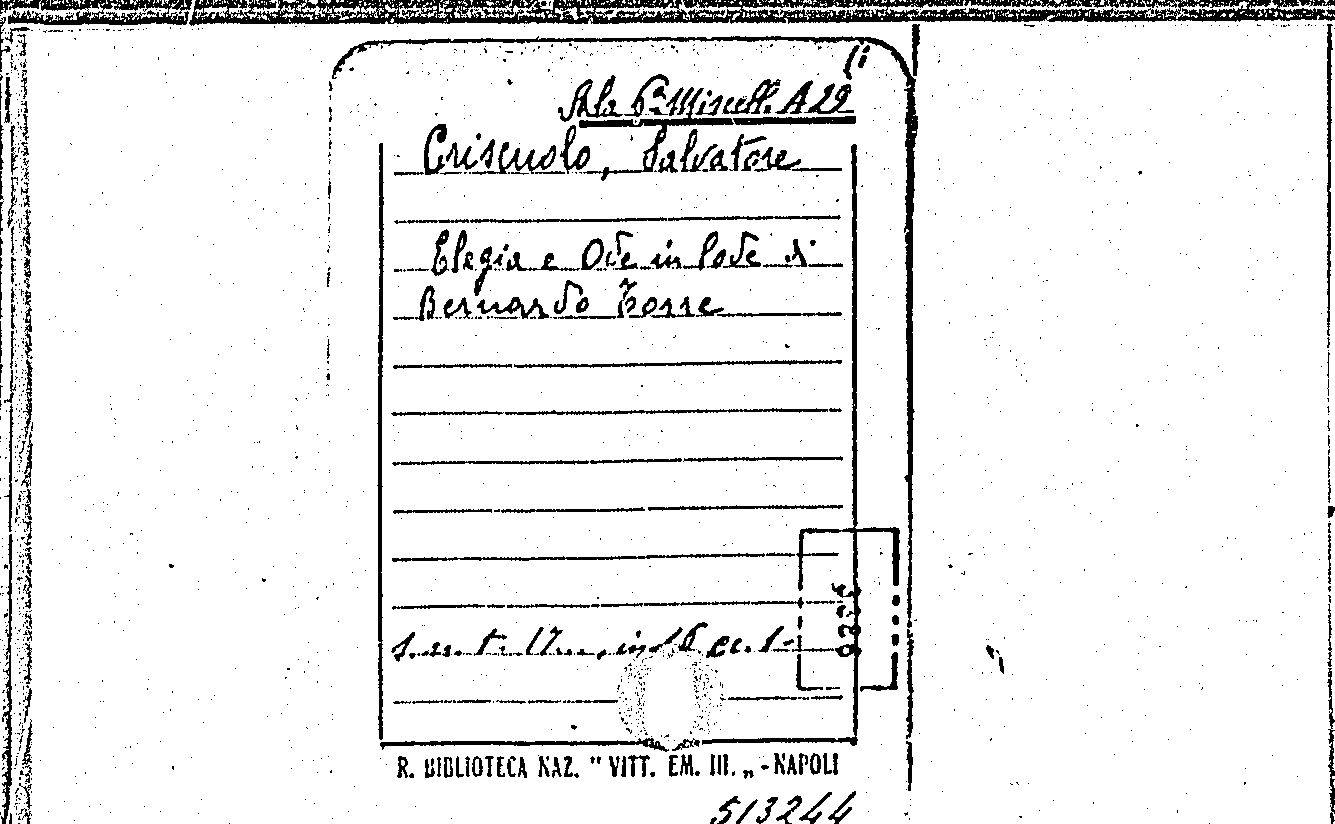 Sala 6ª Miscell. A 29
Criscuolo, Salvatore
Elegia e Ode in lode di
Bernardo Torre
s. n. t. 17.., in 16 cc.
R. BIBLIOTECA NAZ. " VITT. EM. III. „ - NAPOLI
513244